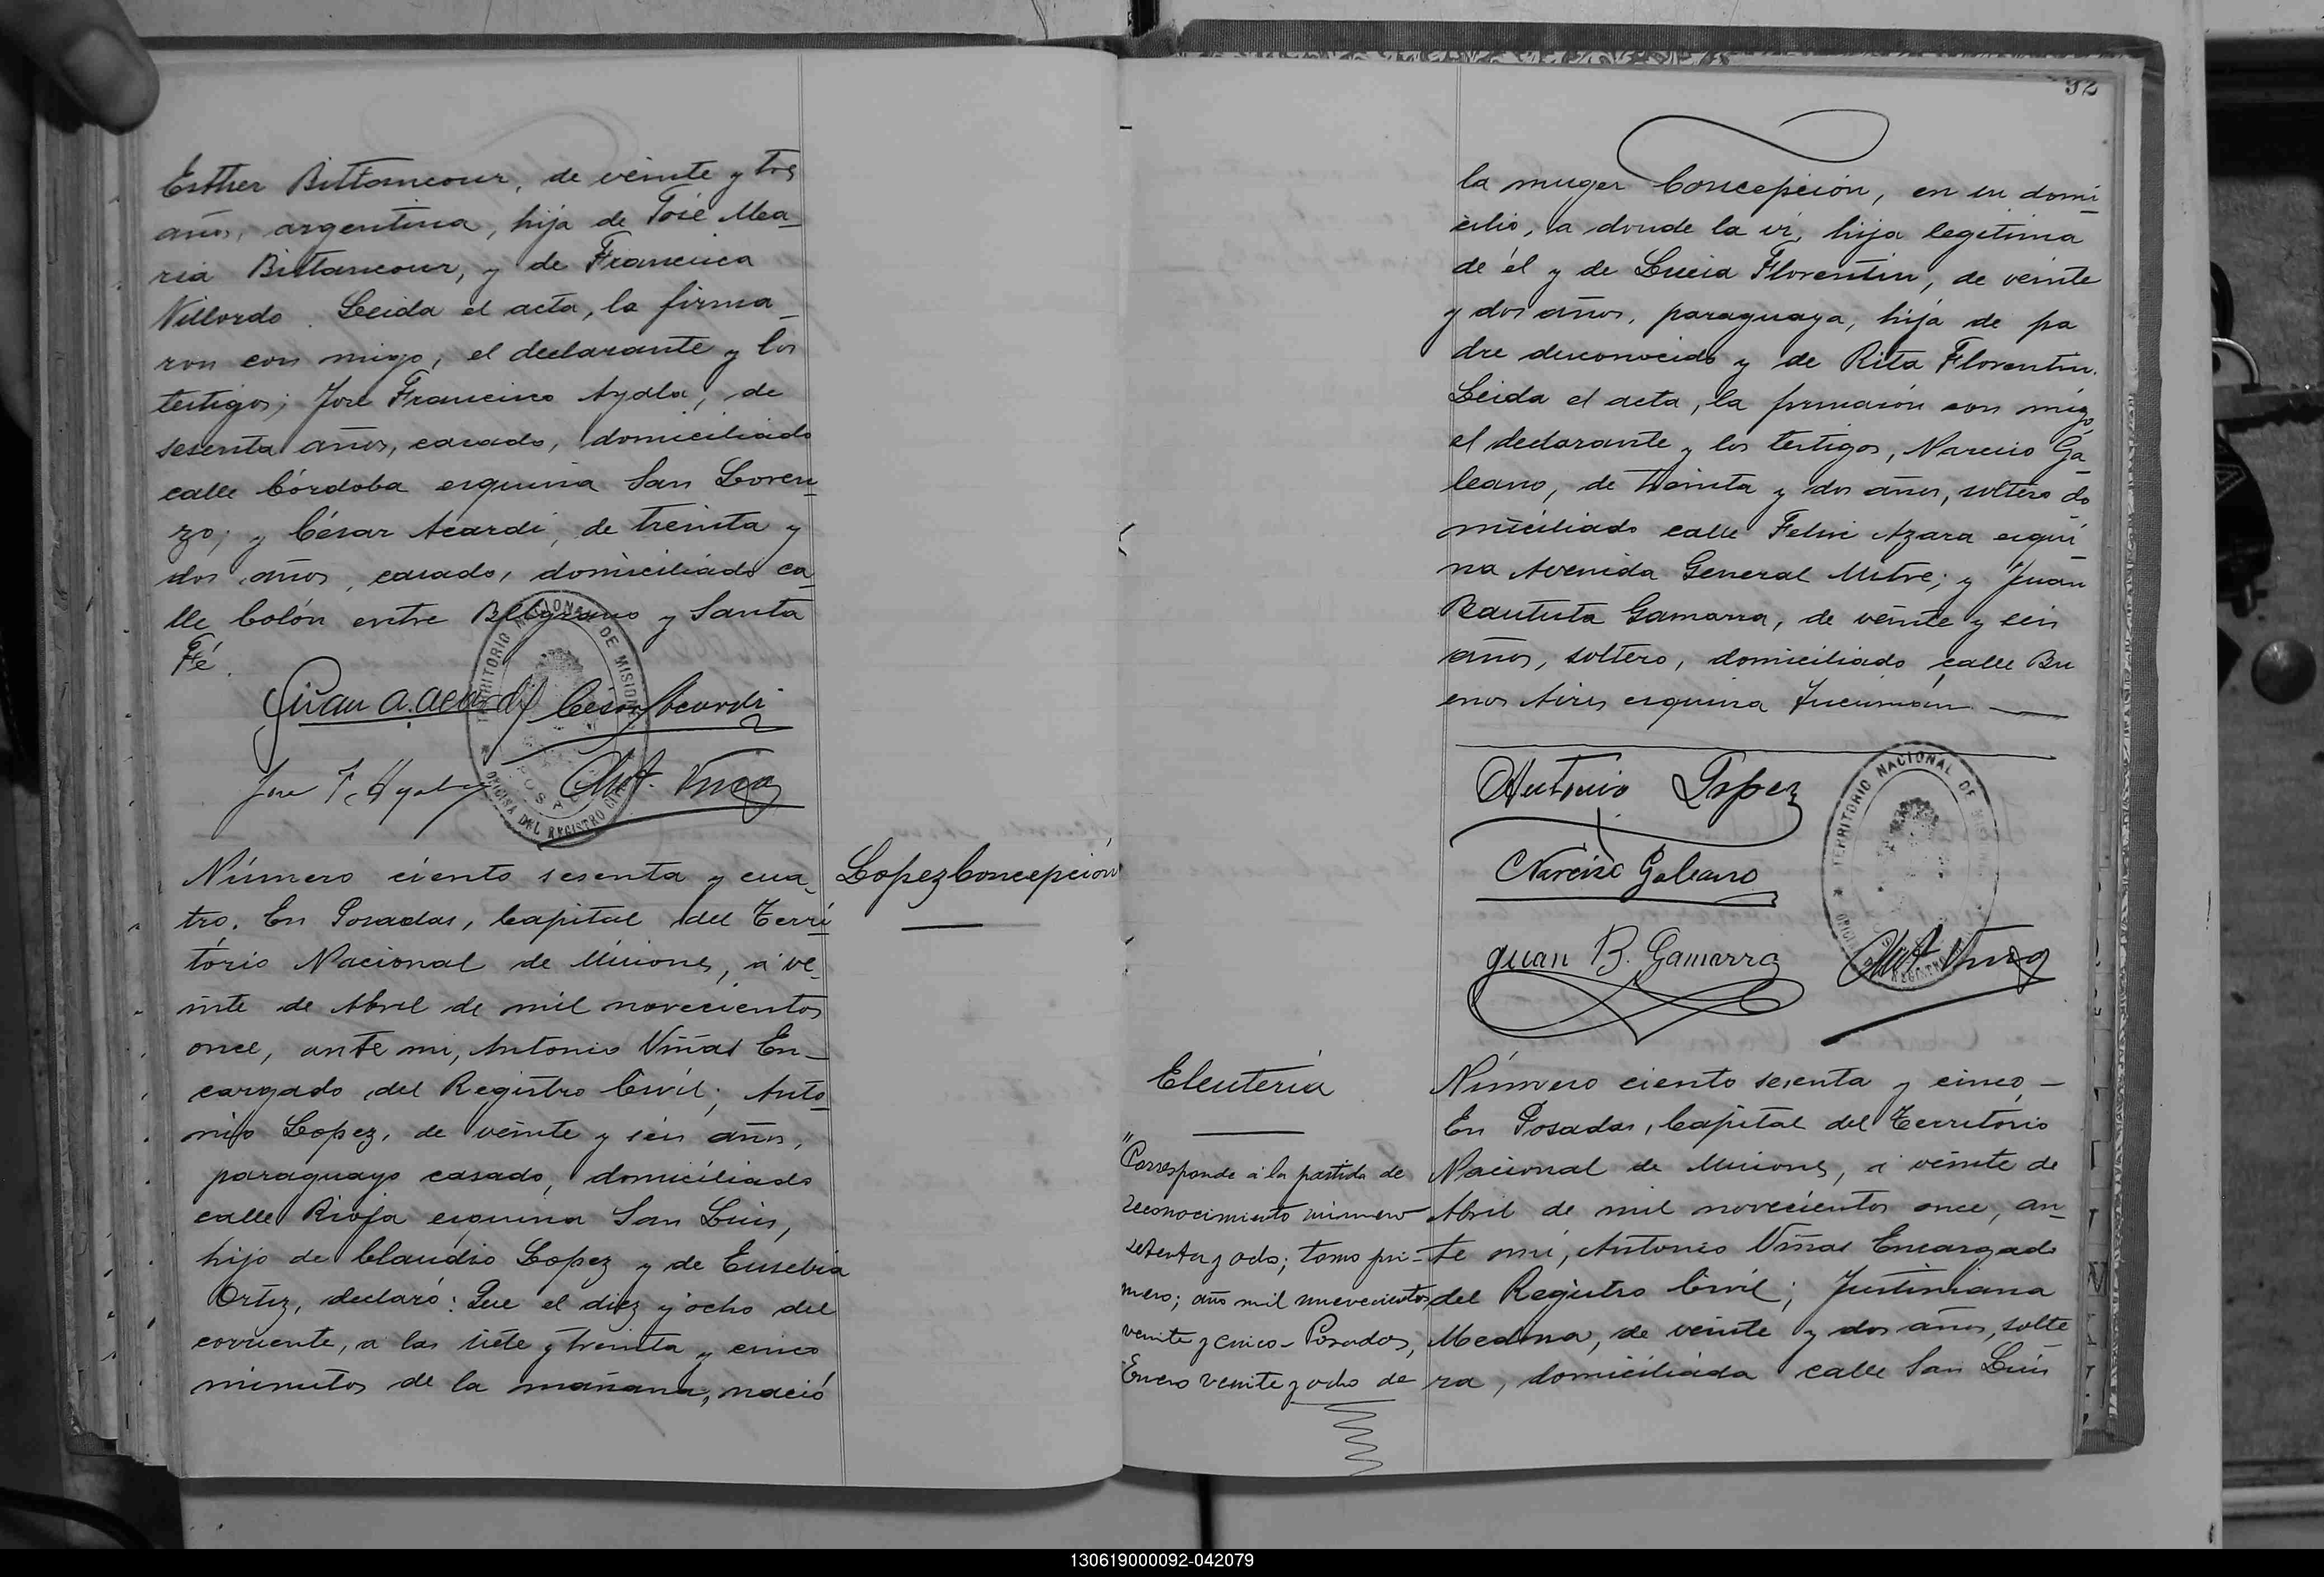 Esther Bittancour, de veinte y tres
años, argentina, hija de José Ma-
ria Bittancour, y de Francisca
Villordo. Leida el acta, la firma-
ron con migo, el declarante y los
testigos; José Francisco Ayala, de
sesenta años, casado, domiciliado
calle Córdoba esquina San Loren-
zo; y César Acardi, de treinta y
dos años, casado, domiciliado ca-
lle Colón entre Belgrano y Santa
Fé.
Juan A. Acardi César Acardi
José F. Ayala Ant. Viñas
TERRITORIO NACIONAL DE MISIONES
OFICINA DEL REGISTRO CIVIL
POSADAS
Número ciento sesenta y cua-
tro. En Posadas, Capital del Terri-
torio Nacional de Misiones, á ve-
inte de Abril de mil novecientos
once, ante mi, Antonio Viñas En-
cargado del Registro Civil; Anto-
nio Lopez, de veinte y seis años,
paraguayo casado, domiciliado
calle Rioja esquina San Luis,
hijo de Claudio Lopez y de Eusebia
Ortiz, declaró: Que el diez y ocho del
corriente, a las siete y treinta y cinco
minutos de la mañana, nació
Lopez Concepción
92
la muger Concepción, en su domi-
cilio, a donde la vi, hija legitima
de él y de Lucia Florentin, de veinte
y dos años, paraguaya, hija de pa
dre desconocido y de Rita Florentin.
Leida el acta, la firmaron con migo
el declarante y los testigos, Narciso Ga-
leano, de treinta y dos años, soltero do-
miciliado calle Felix Azara esqui-
na Avenida General Mitre; y Juan
Bautista Gamarra, de veinte y seis
años, soltero, domiciliado calle Bu
enos Aires esquina Tucumán
Antonio Lopez
Narciso Galeano
Juan B. Gamarra Ant. Viñas
TERRITORIO NACIONAL DE MISIONES
OFICINA DEL REGISTRO
Eleuteria
"Corresponde á la partida de
reconocimiento número
setenta y ocho; tomo pri-
mero; año mil nuevecientos
veinte y cinco - Posadas,
Enero veinte y ocho de
Número ciento sesenta y cinco -
En Posadas, Capital del Territorio
Nacional de Misiones, á veinte de
Abril de mil novecientos once, an-
te mi, Antonio Viñas Encargado
del Registro Civil; Justiniana
Medina, de veinte y dos años, solte
ra, domiciliada calle San Luis
130619000092-042079